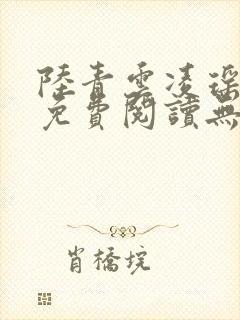 陸青雲凌瑶
免費閱讀無
肖橋垸